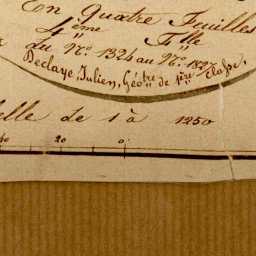 En Quatre Feuilles
4ème Flle
du No. 1324 au No. 1827
Declaye, Julien, Géotre de 1ère Classe,
elle de 1 à 1250
20 0